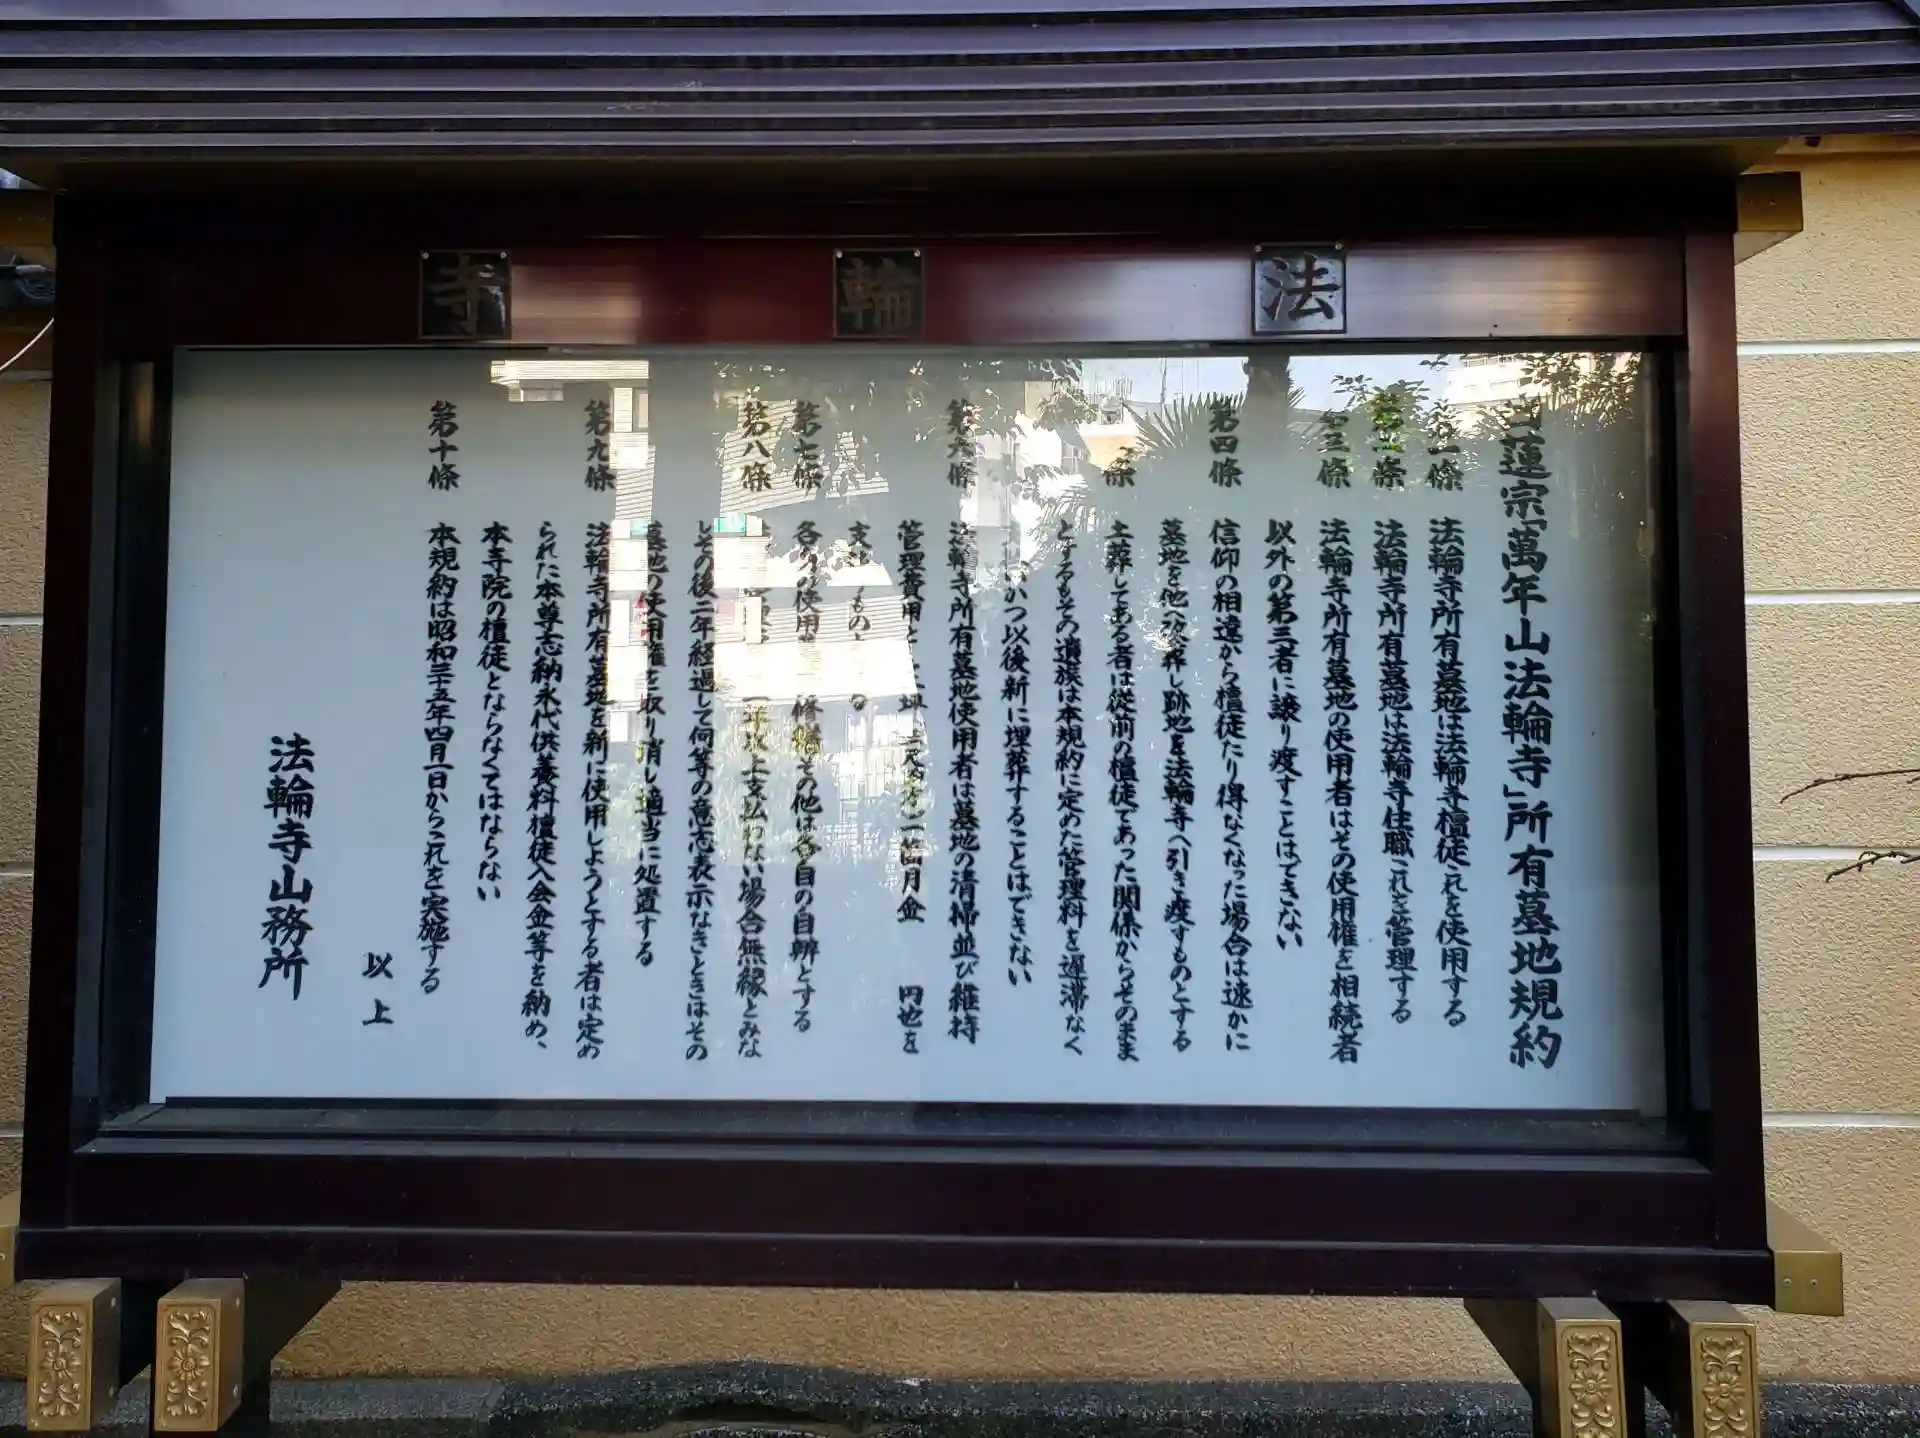 法輪寺
日蓮宗「萬年山法輪寺」所有墓地規約
條 法輪寺所有墓地は法輪寺檀徒これを使用する
條 法輪寺所有墓地は法輪寺住職これを管理する
第三條 法輪寺所有墓地の使用者はその使用権を相続者
以外の第三者に譲り渡すことはできない
第四條 信仰の相違から檀徒たり得なくなった場合は速かに
墓地を他へ改葬し跡地を法輪寺へ引き渡すものとする
條 土葬してある者は従前の檀徒であった関係からそのまま
とするもその遺族は本規約に定めた管理料を遅滞なく
かつ以後新に埋葬することはできない
第六條 法輪寺所有墓地使用者は墓地の清掃並び維持
管理費用と 一箇月金 円也を
支 もの る
第七條 各々の使用 修繕その他は各自の自辨とする
第八條 一年以上支払わない場合無縁とみな
しその後二年経過して何等の意志表示なきときはその
墓地の使用権を取り消し適当に処置する
第九條 法輪寺所有墓地を新に使用しようとする者は定め
られた本尊志納永代供養料檀徒入会金等を納め、
本寺院の檀徒とならなくてはならない
第十條 本規約は昭和三十五年四月一日からこれを実施する
以上
法輪寺山務所